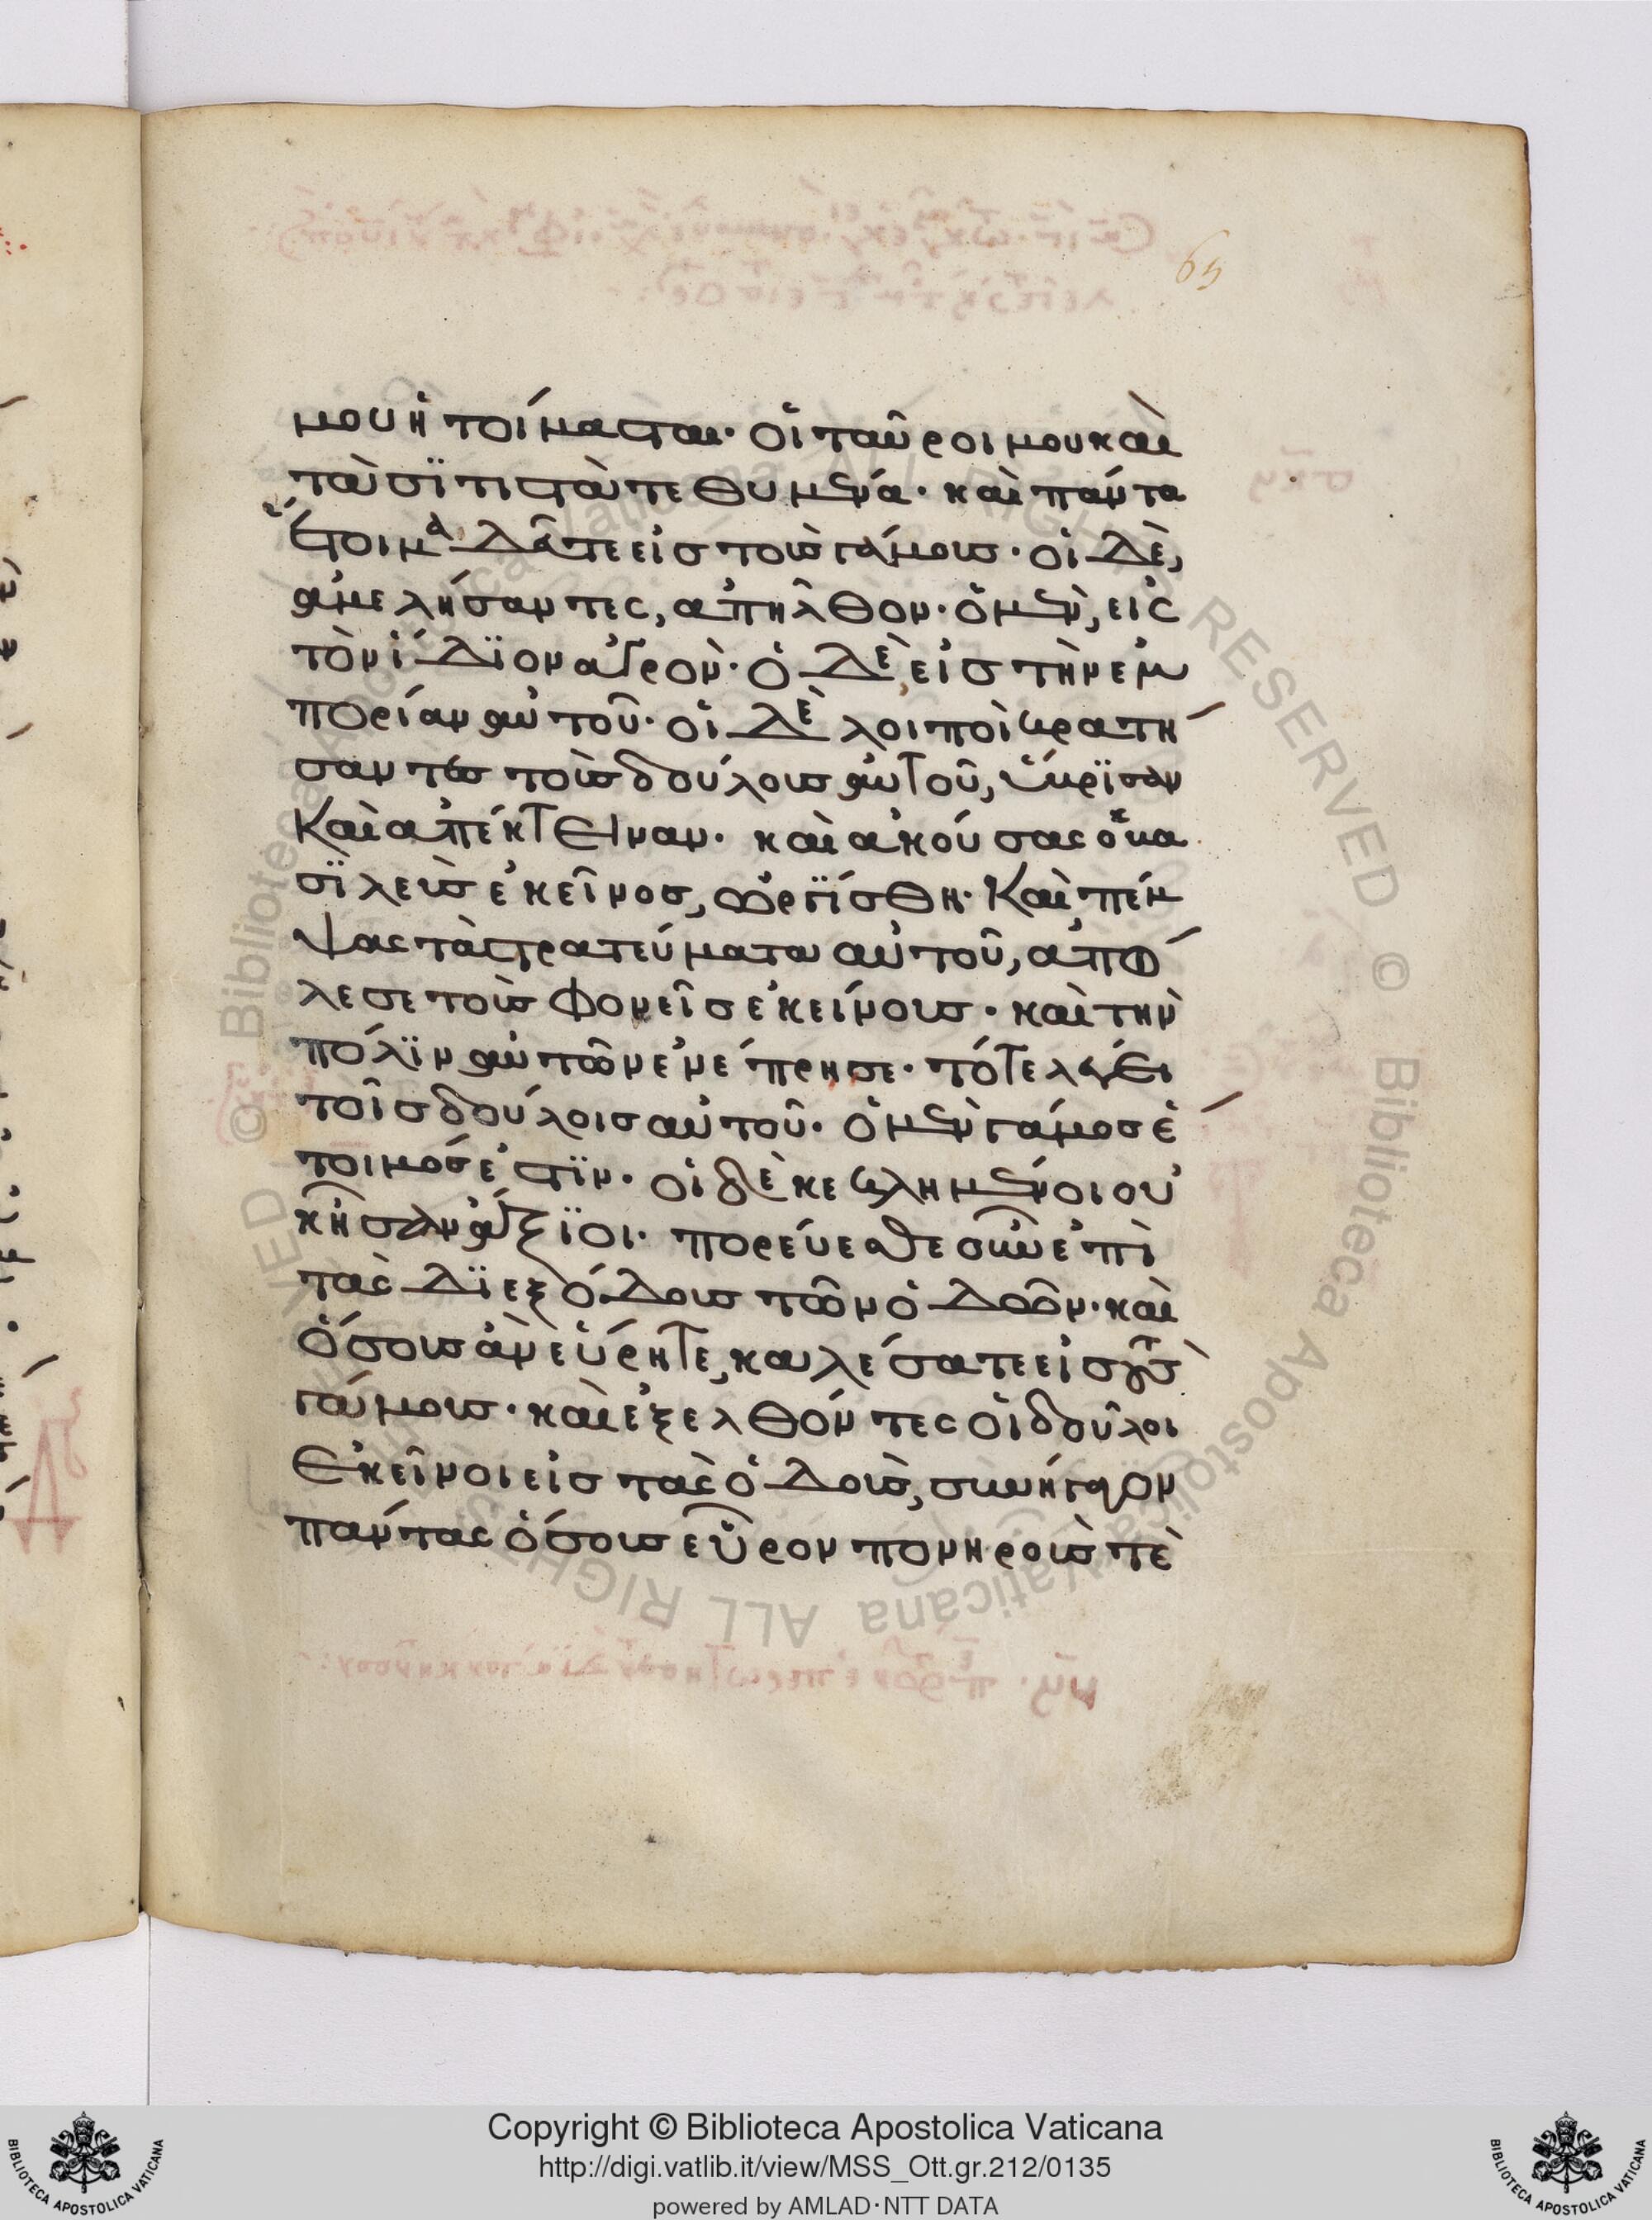 65
μου ἡτοίμασται· οἱ ταῦροί μου καὶ
τὰ σϊτιστὰ τεθυμένα· καὶ πάντα
ἕτοιμα δεῦτε εἰς τοὺς γάμους· οἱ δὲ,
ἀμελήσαντες, ἀπῆλθον· ὁ μὲν, εἰς
τὸν ἴδϊον ἀγρὸν· ὁ δὲ, εἰς τὴν ἐμ
πορίαν αὐτοῦ· οἱ δὲ λοιποὶ κρατή
σαντες τοὺς δούλους αὐτοῦ, ὕβρϊσαν
καὶ ἀπέκτειναν· καὶ ἀκούσας ὁ βα
σϊλεὺς ἐκεῖνος, ὠργΐσθη· καὶ πέμ
ψας τὰ στρατεύματα αὐτοῦ, ἀπώ
λεσε τοὺς φονεῖς ἐκείνους· καὶ τὴν
πόλϊν αὐτῶν ἐνέπρησε· τότε λέγει
τοῖς δούλοις αὐτοῦ· ὁ μὲν γάμος ἕ
τοιμός ἐστϊν· οἱ δὲ κεκλημένοι οὐ
κ ἦσαν ἄξϊοι· πορεύεσθε οὖν ἐπὶ
τὰς δϊεξόδους τῶν ὁδῶν· καὶ
ὅσους ἂν εὕρητε, καλέσατε εἰς τοὺς
γάμους· καὶ ἐξελθόντες οἱ δοῦλοι
ἐκεῖνοι εἰς τὰς ὁδοὺς, συνήγαγον
πάντας ὅσους εὗρον πονηροὺς τὲ
Copyright © Biblioteca Apostolica Vaticana
http://digi.vatlib.it/view/MSS_Ott.gr.212/0135
powered by AMLAD·NTT DATA
BIBLIOTECA APOSTOLICA VATICANA
BIBLIOTECA APOSTOLICA VATICANA
© Biblioteca Apostolica Vaticana ALL RIGHTS RESERVED © Biblioteca Apostolica Vaticana ALL RIGHTS RESERVED